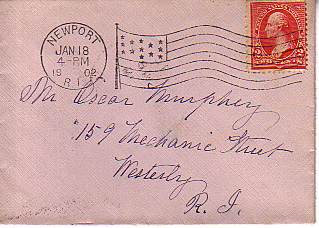 NEWPORT
JAN 18
4-PM
19 02
R.I.
Mr Oscar Murphey
159 Mechanic Street
Westerly
R. I.